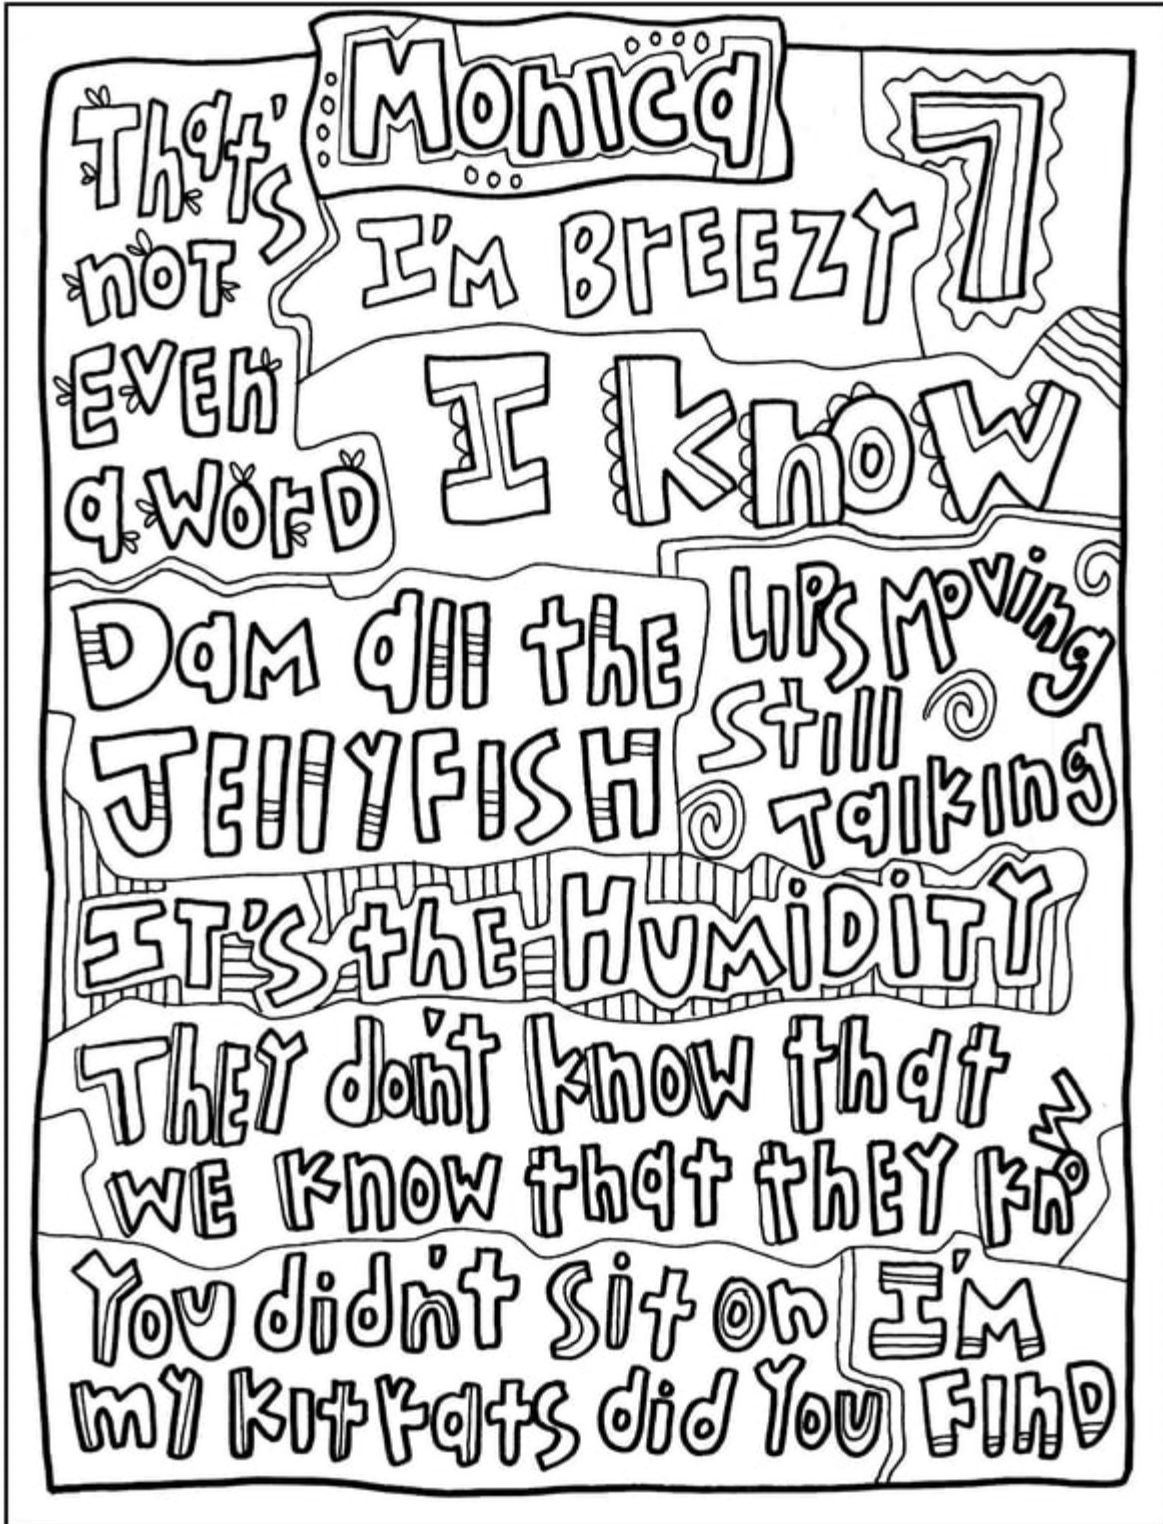 Monica
7
That's
not
Even
a word
I'm Breezy
I know
Dam all the
Jellyfish
Lips Moving
Still
Talking
It's the Humidity
They don't know that
we know that they know
You didn't sit on
my kitkats did You
I'm
Find